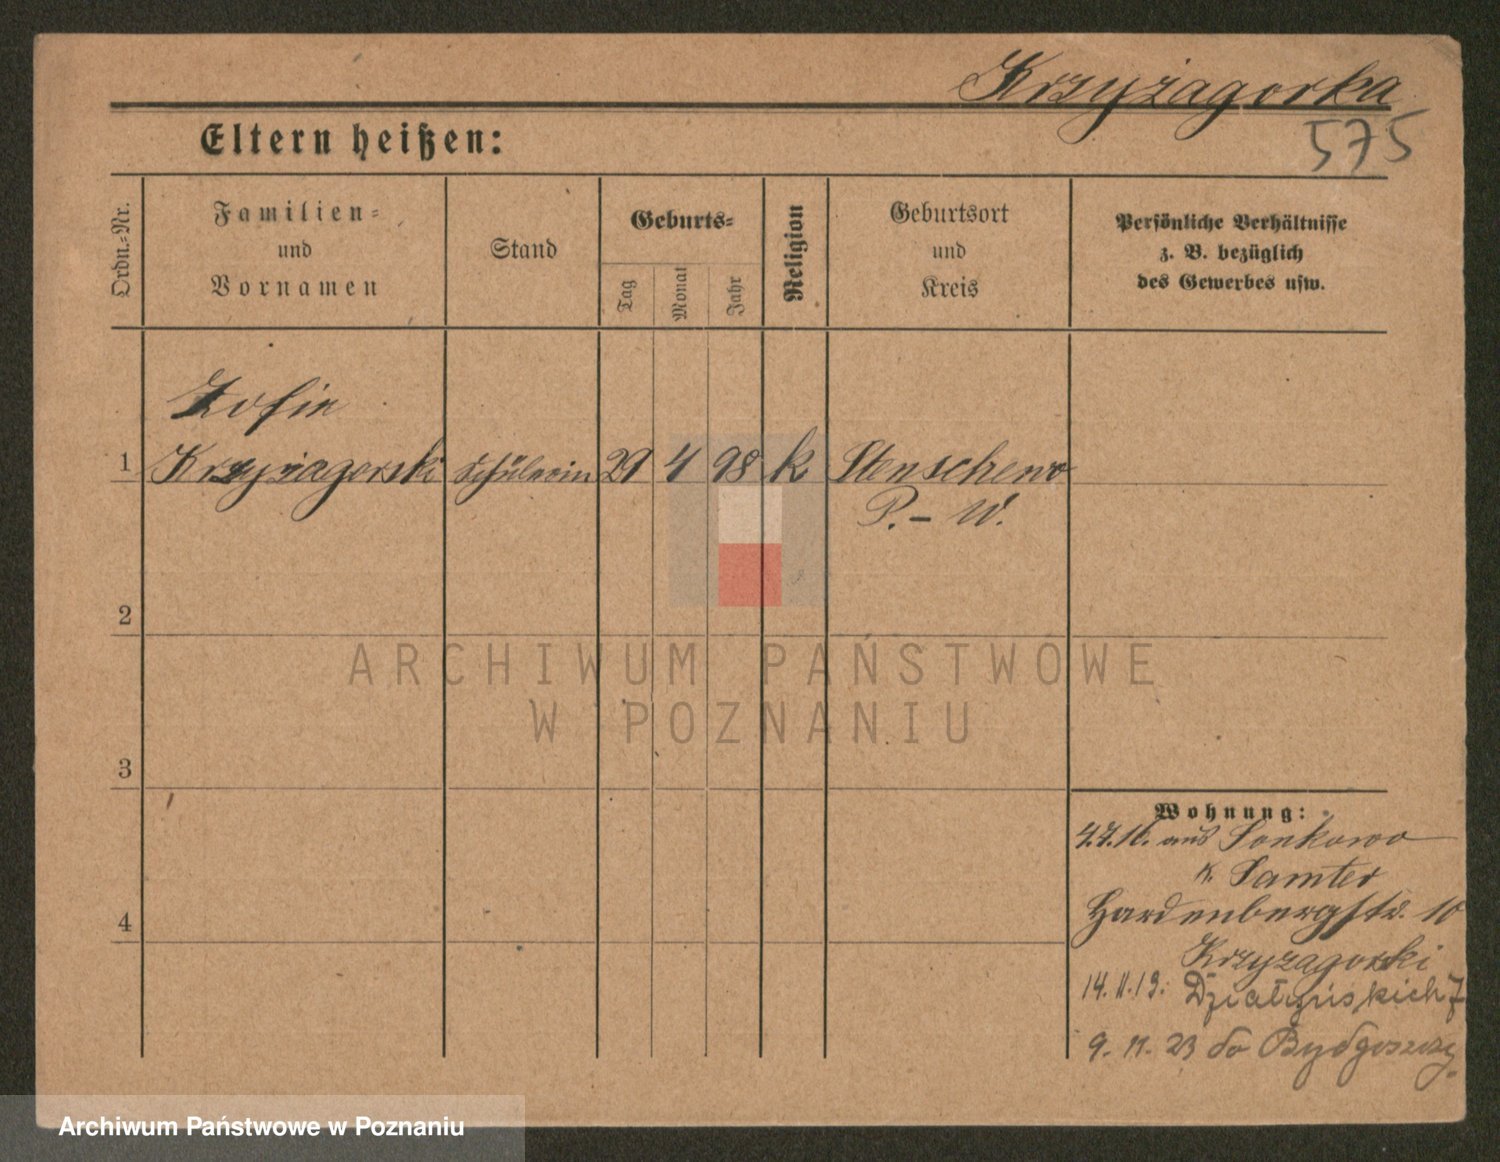 Krzyżagorka
575
Eltern heißen:
Ordn.-Nr.
Familien-
und
Vornamen
Stand
Geburts-
Tag
Monat
Jahr
Religion
Geburtsort
und
Kreis
Persönliche Verhältnisse
z. B. bezüglich
des Gewerbes usw.
Zofie
1 Krzyzagorski Schülerin 29 4 98 k Stenschewo
P. - W.
2
3
4
Wohnung:
4.7.16. aus Sonkowo
K. Samter
Hardenbergstr. 10
Krzyzagorski
14.11.19. Działyńskich 7
9. 11. 23 do Bydgoszczy.
ARCHIWUM PAŃSTWOWE
W POZNANIU
Archiwum Państwowe w Poznaniu